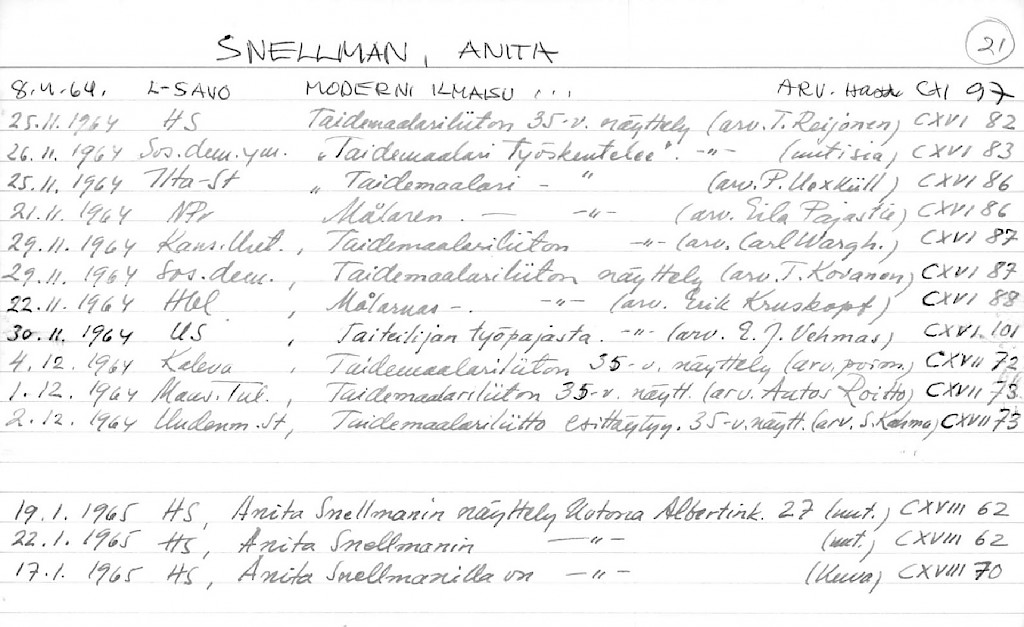 SNELLMAN, ANITA 21
8.4.64. L-SAVO MODERNI ILMAISU ... ARV. CXI 97
25.11.1964 HS Taidemaalariliiton 35-v. näyttely (arv. T. Reijonen) CXVI 82
26.11.1964 Sos.dem.ym. „Taidemaalari Työskentelee". -"- (uutisia) CXVI 83
25.11.1964 Ilta-St „ Taidemaalari - " (arv. P. Uexküll) CXVI 86
21.11.1964 NPr Målaren . — -"- (arv. Eila Pajastie) CXVI 86
29.11.1964 Kans.Uut. , Taidemaalariliiton -"- (arv. Carl Wargh.) CXVI 87
29.11.1964 Sos.dem. , Taidemaalariliiton näyttely (arv. T. Kovanen) CXVI 87
22.11.1964 Hbl , Målarnas -. -"- (arv. Erik Kruskopf) CXVI 88
30.11.1964 US , Taiteilijan työpajasta. -"- (arv. E. J. Vehmas) CXVI 101
4.12.1964 Kaleva , Taidemaalariliiton 35-v. näyttely (arv. poim.) CXVII 72
1.12.1964 Maas.Tul. , Taidemaalariliiton 35-v. näytt. (arv. Autos Roitto) CXVII 73
2.12.1964 Uudenm.St, Taidemaalariliitto esittäytyy. 35-v. näytt. (arv. S. Kahma) CXVII 73
19.1.1965 HS, Anita Snellmanin näyttely Albertink. 27 (uut.) CXVIII 62
22.1.1965 HS, Anita Snellmanin —"- (uut.) CXVIII 62
17.1.1965 HS, Anita Snellmanilla on —"- (kuva) CXVIII 70